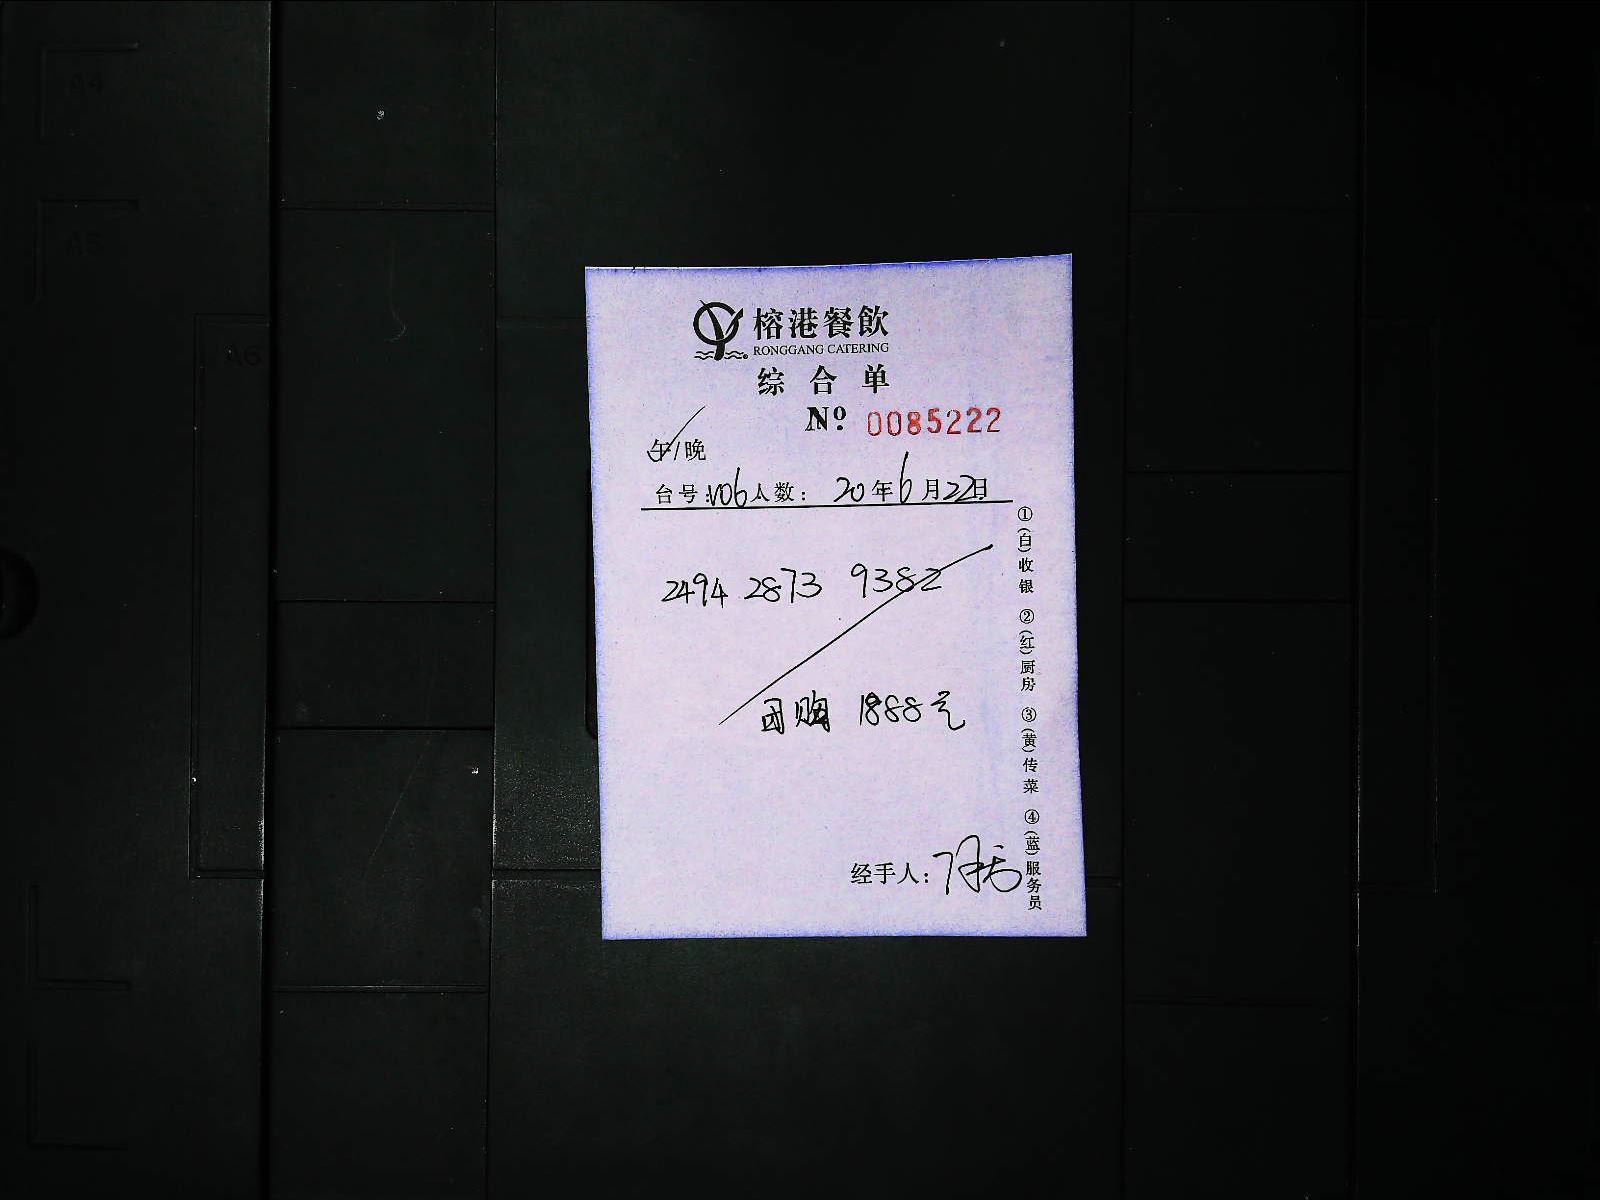 榕港餐飲
RONGGANG CATERING
综合单
№ 0085222
午/晚
台号:V06 人数: 20年6月22日
2494 2873 9382
团购 1888元
经手人:
①(白)收银 ②(红)厨房 ③(黄)传菜 ④(蓝)服务员
A4
A5
A6